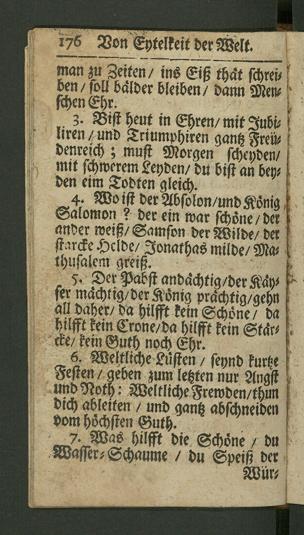 176 Von Eytelkeit der Welt.
man zu Zeiten / ins Eiß thät schrei-
ben / soll bälder bleiben / dann Men-
schen Ehr.
3. Bist heut in Ehren / mit Jubi-
liren / und Triumphiren gantz Freü-
denreich ; must Morgen scheyden /
mit schwerem Leyden / du bist an bey-
den eim Todten gleich.
4. Wo ist der Absolon / und König
Salomon ? der ein war schöne / der
ander weiß / Samson der Wilde / der
starcke Helde / Jonathas milde / Ma-
thusalem greiß.
5. Der Pabst andächtig / der Käy-
ser mächtig / der König prächtig / gehn
all daher / da hilfft kein Schöne / da
hilfft kein Crone / da hilfft kein Stär-
cke / kein Guth noch Ehr.
6. Weltliche Lüsten / seynd kurtze
Festen / geben zum letzten nur Angst
und Noth : Weltliche Frewden / thun
dich ableiten / und gantz abschneiden
vom höchsten Guth.
7. Was hilfft die Schöne / du
Wasser-Schaume / du Speiß der
Wür-